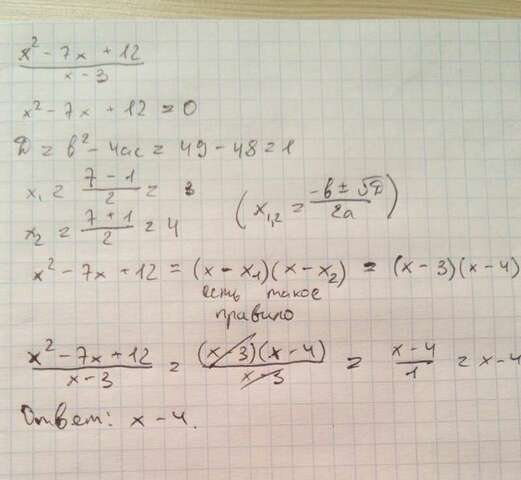 x² - 7x + 12
x - 3
x² - 7x + 12 = 0
D = b² - 4ac = 49 - 48 = 1
x₁ = (7 - 1)/2 = 3
(x₁,₂ = (-b ± √D)/2a)
x₂ = (7 + 1)/2 = 4
x² - 7x + 12 = (x - x₁)(x - x₂) = (x - 3)(x - 4)
есть такое
правило
(x² - 7x + 12)/(x - 3) = ((x - 3)(x - 4))/(x - 3) = (x - 4)/1 = x - 4
Ответ: x - 4.